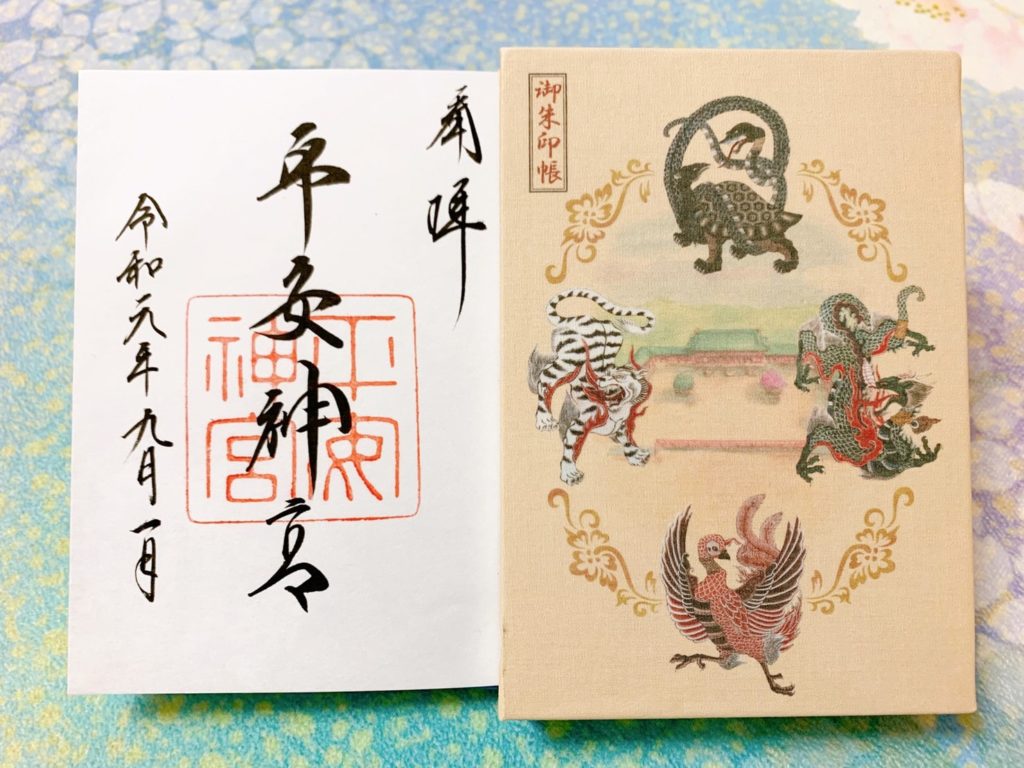 奉拝
平安神宮
平安
神宮
令和元年九月一日
御朱印帳